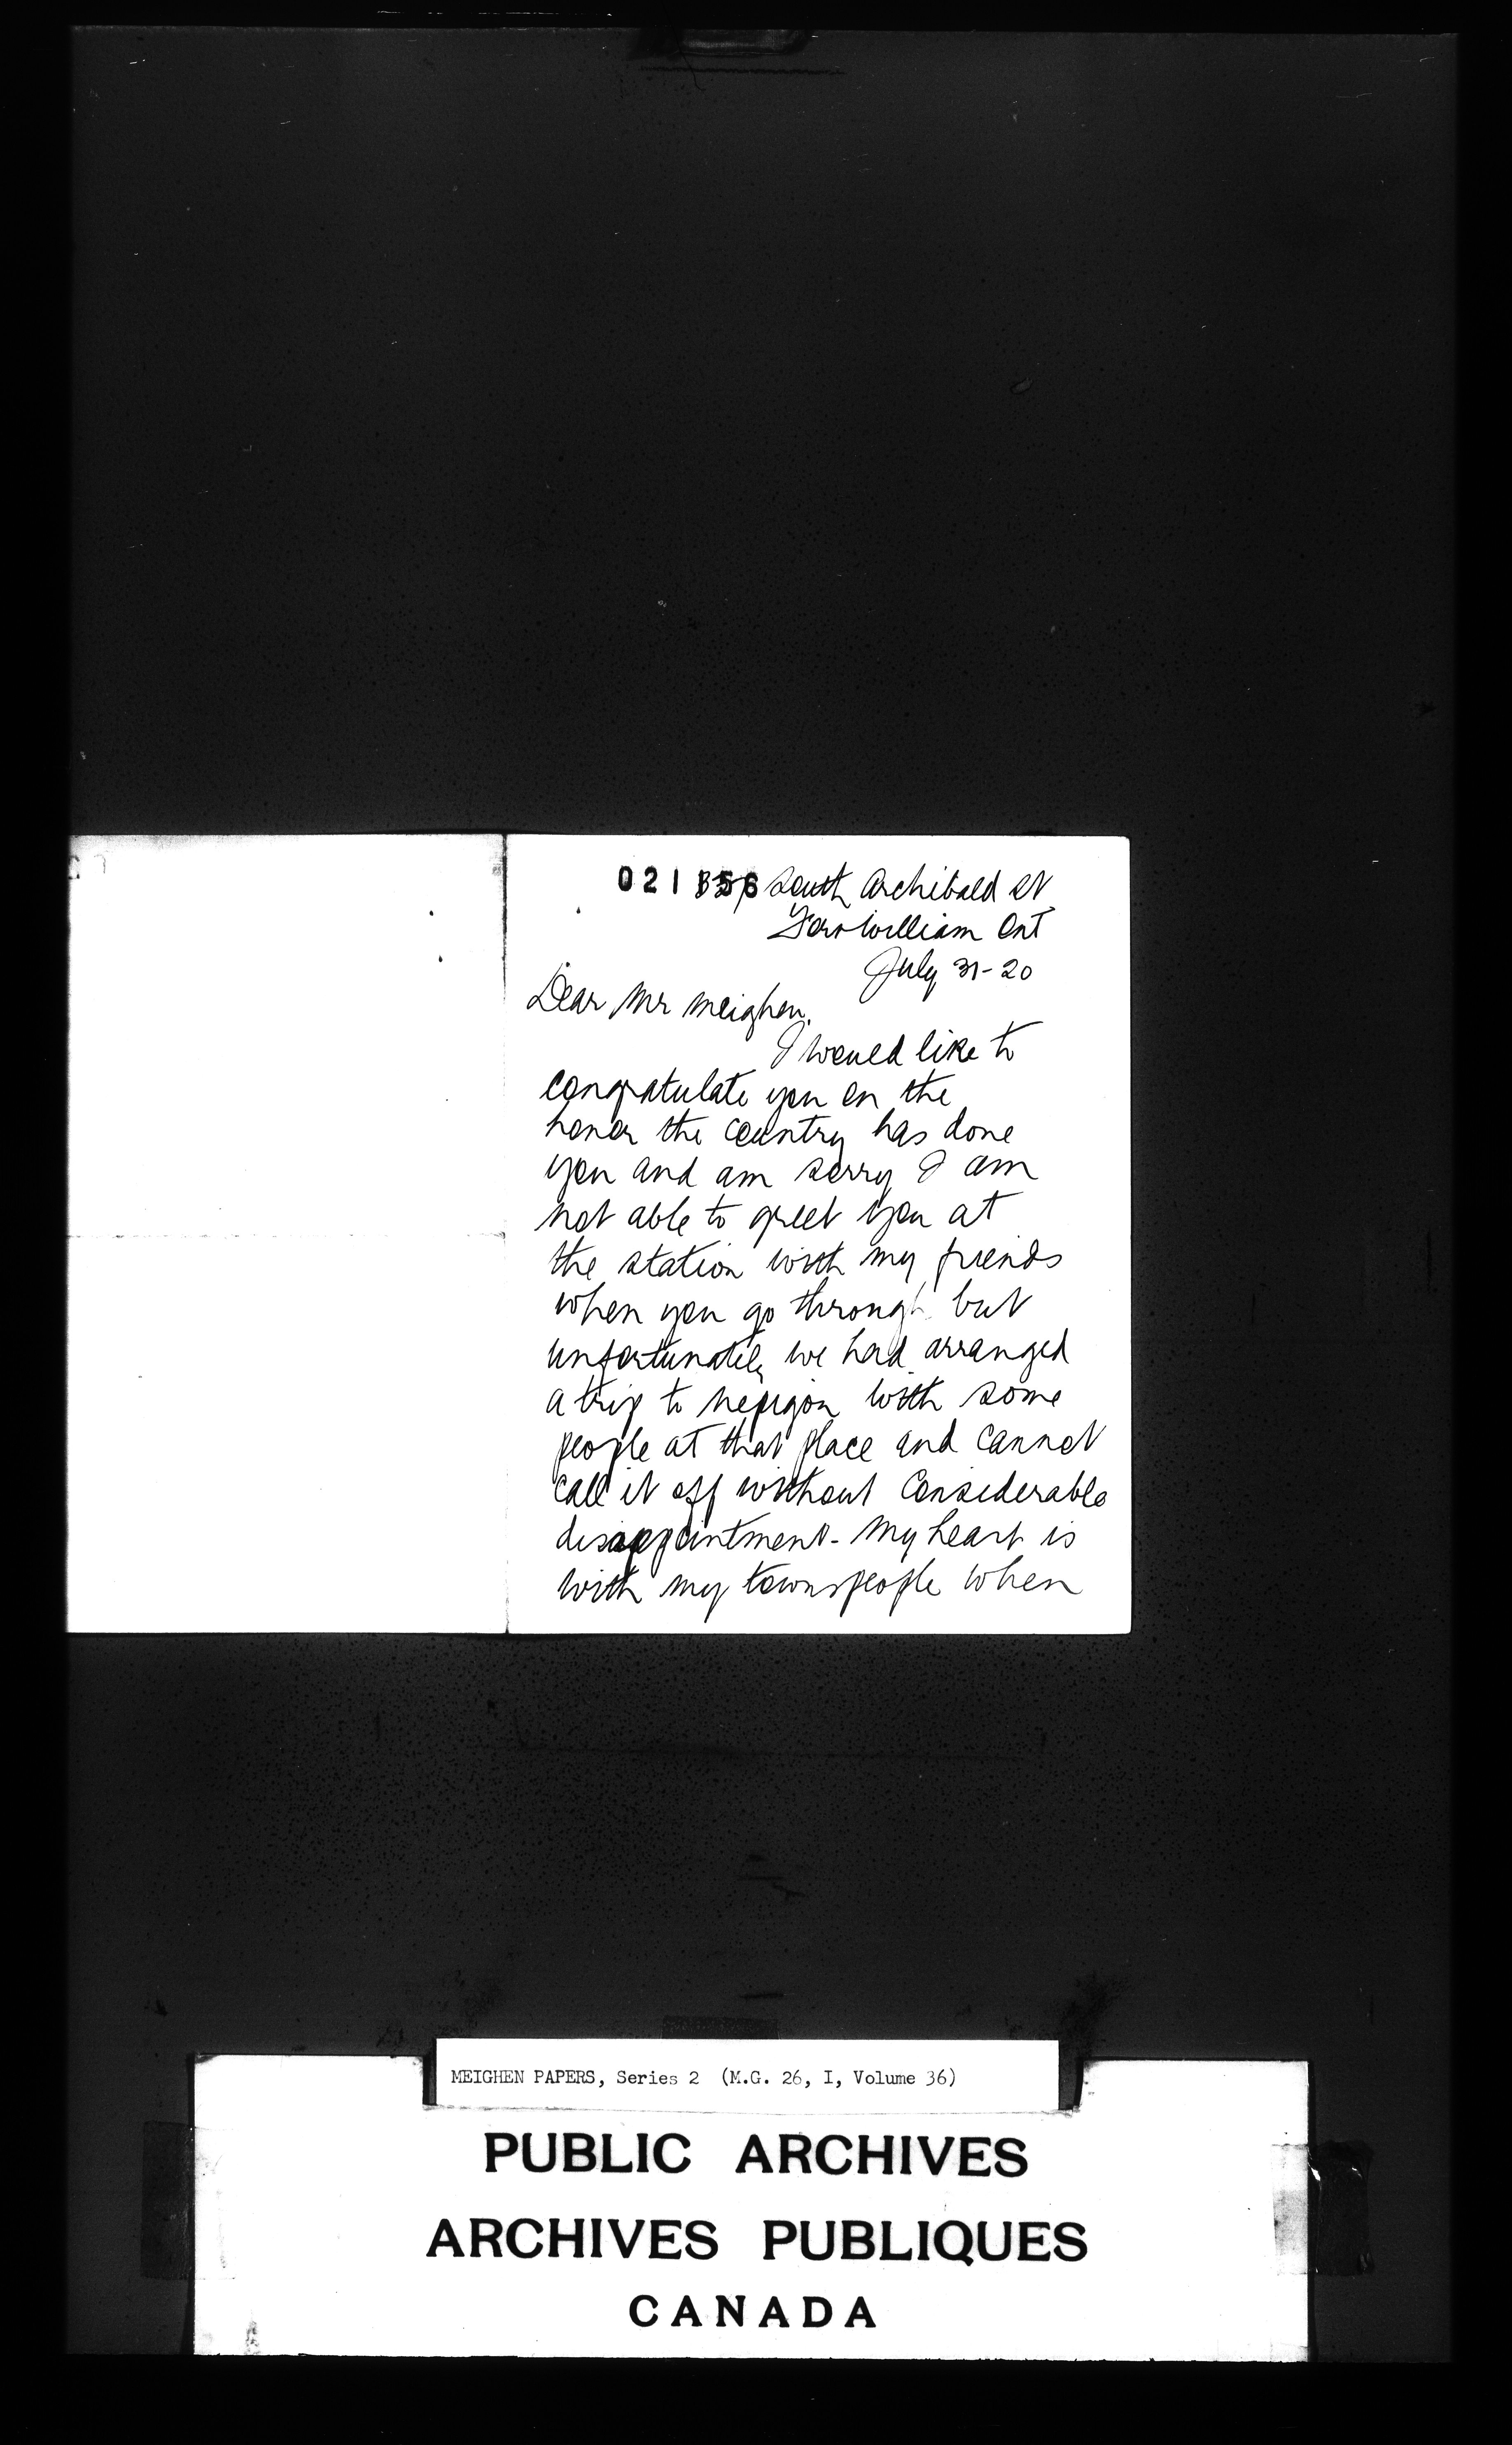 021856 South Archibald St
Fort William Ont
July 31-20
Dear Mr Meighen.
I would like to
congratulate you on the
honor the country has done
you and am sorry I am
not able to greet you at
the station with my friends
when you go through but
unfortunately we had arranged
a trip to Nepigon with some
people at that place and cannot
call it off without considerable
disappointment - My heart is
with my townspeople when
MEIGHEN PAPERS, Series 2 (M.G. 26, I, Volume 36)
PUBLIC ARCHIVES
ARCHIVES PUBLIQUES
CANADA